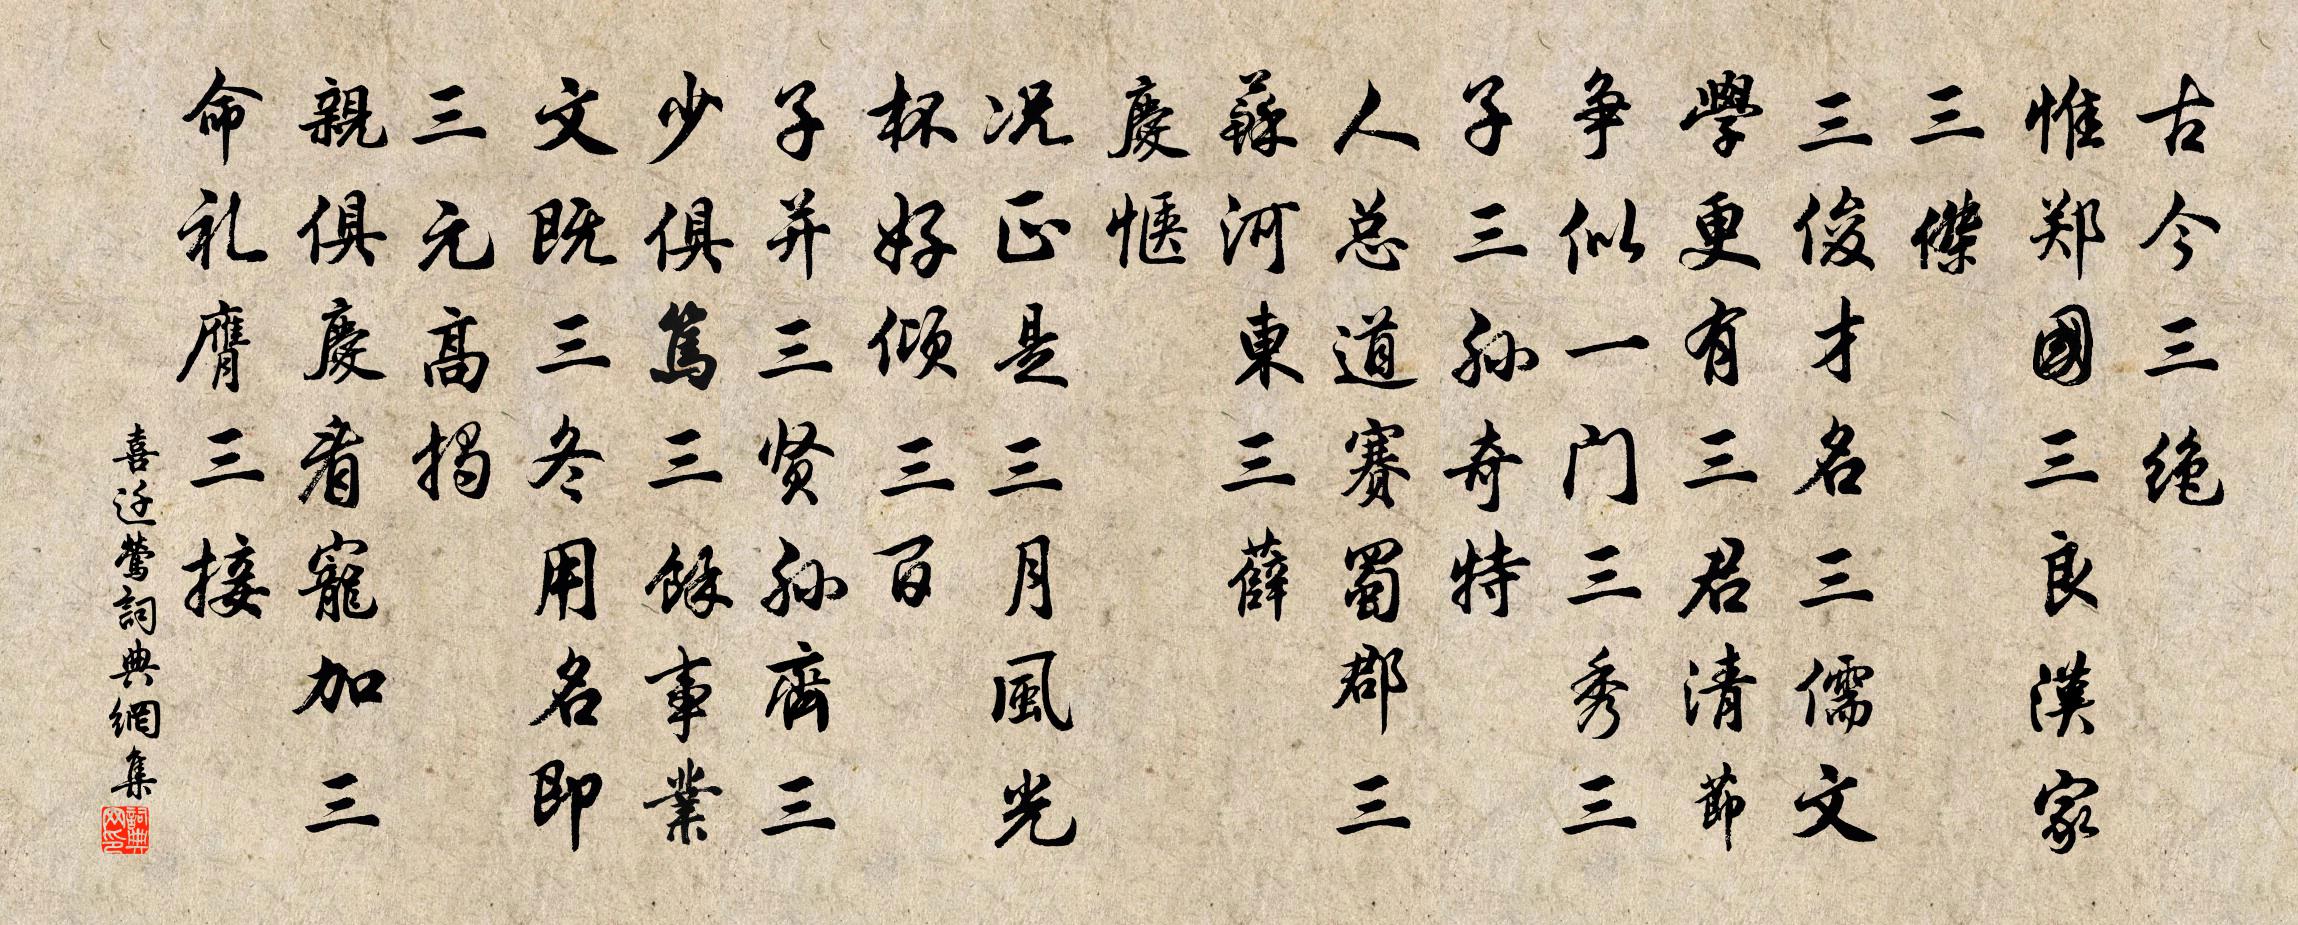 古今三绝
惟郑國三良漢家
三傑
三俊才名三儒文
學更有三君清節
争似一门三秀三
子三孙奇特
人总道賽蜀郡三
蘇河東三薛
慶惬
况正是三月風光
杯好倾三百
子并三贤孙齊三
少俱篤三餘事業
文既三冬用名即
三元高揭
親俱慶看寵加三
命礼膺三接
喜迁鶯詞典網集
詞典网印